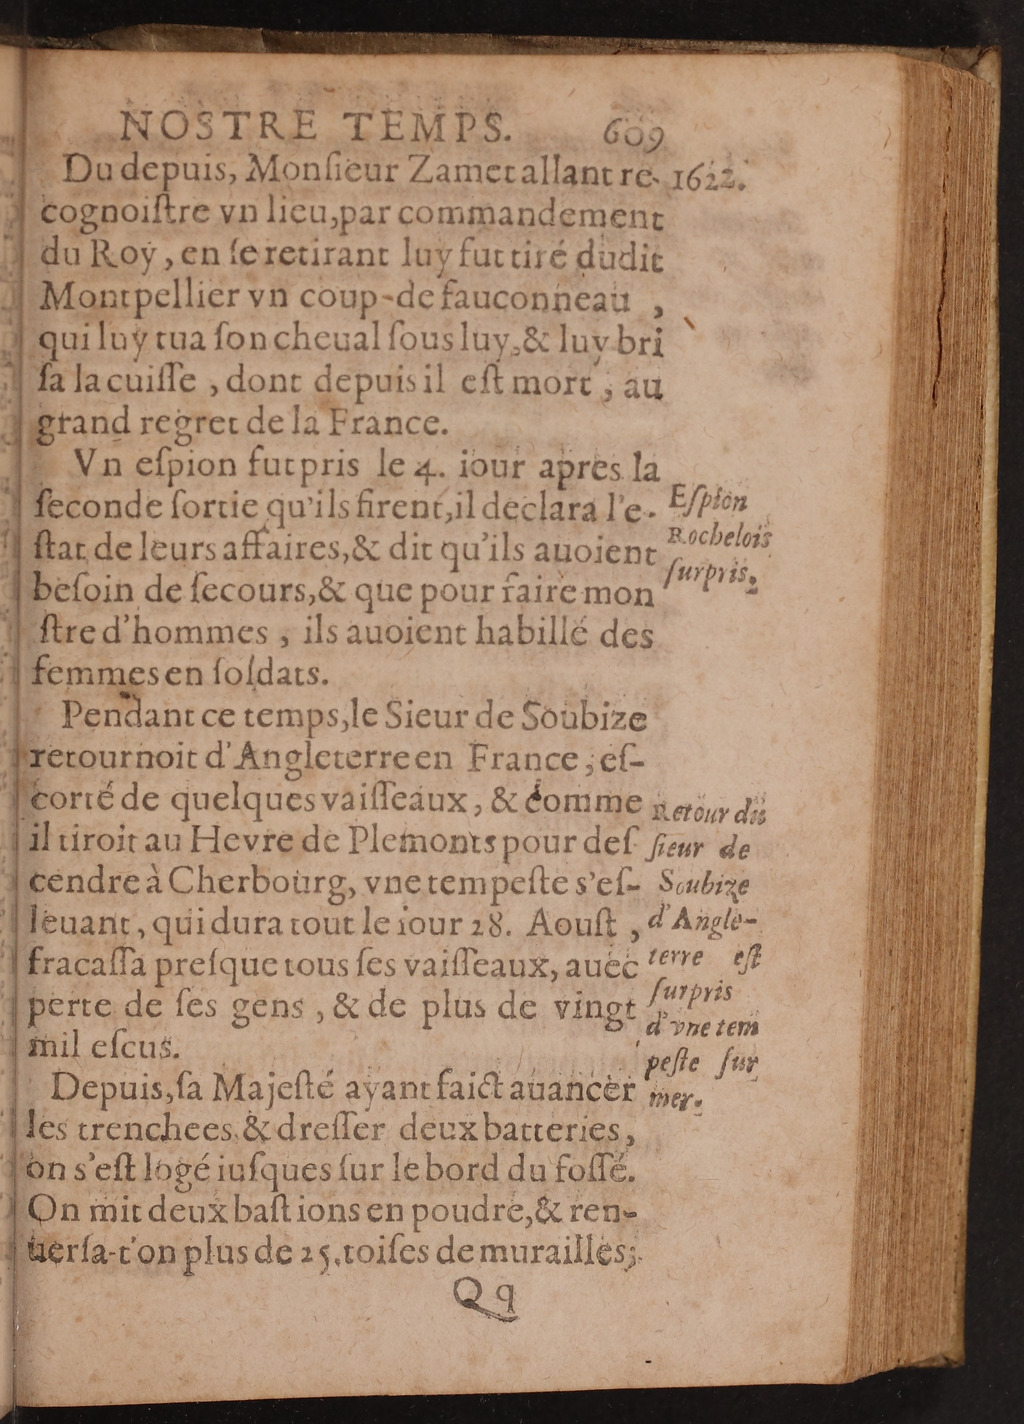 NOSTRE TEMPS. 609
Du depuis, Monſieur Zamet allant re- 1622.
cognoiſtre vn lieu, par commandement
du Roy, en ſe retirant luy fut tiré dudit
Montpellier vn coup-de fauconneau ,
qui luy tua ſon cheual ſous luy, & luy bri
ſa la cuiſſe , dont depuis il eſt mort , au
grand regret de la France.
Vn eſpion fut pris le 4. iour apres la
ſeconde ſortie qu'ils firent, il declara l'e-
ſtat de leurs affaires, & dit qu'ils auoient
beſoin de ſecours, & que pour faire mon
ſtre d'hommes , ils auoient habillé des
femmes en ſoldats.
Eſpion
Rochelois
ſurpris.
Pendant ce temps, le Sieur de Soubize
retournoit d'Angleterre en France ; eſ-
corté de quelques vaiſſeaux , & comme
il tiroit au Hevre de Plemonts pour deſ
cendre à Cherbourg, vne tempeſte s'eſ-
leuant , qui dura tout le iour 28. Aouſt ,
fracaſſa preſque tous ſes vaiſſeaux, auec
perte de ſes gens , & de plus de vingt
mil eſcus.
Retour du
ſieur de
Soubize
d'Angle-
terre eſt
ſurpris
d'vne tem
peſte ſur
mer.
Depuis, ſa Majeſté ayant faict auancer
les trenchees, & dreſſer deux batteries,
on s'eſt logé iuſques ſur le bord du foſſé.
On mit deux baſtions en poudre, & ren-
uerſa-t'on plus de 25. toiſes de murailles;
Qq